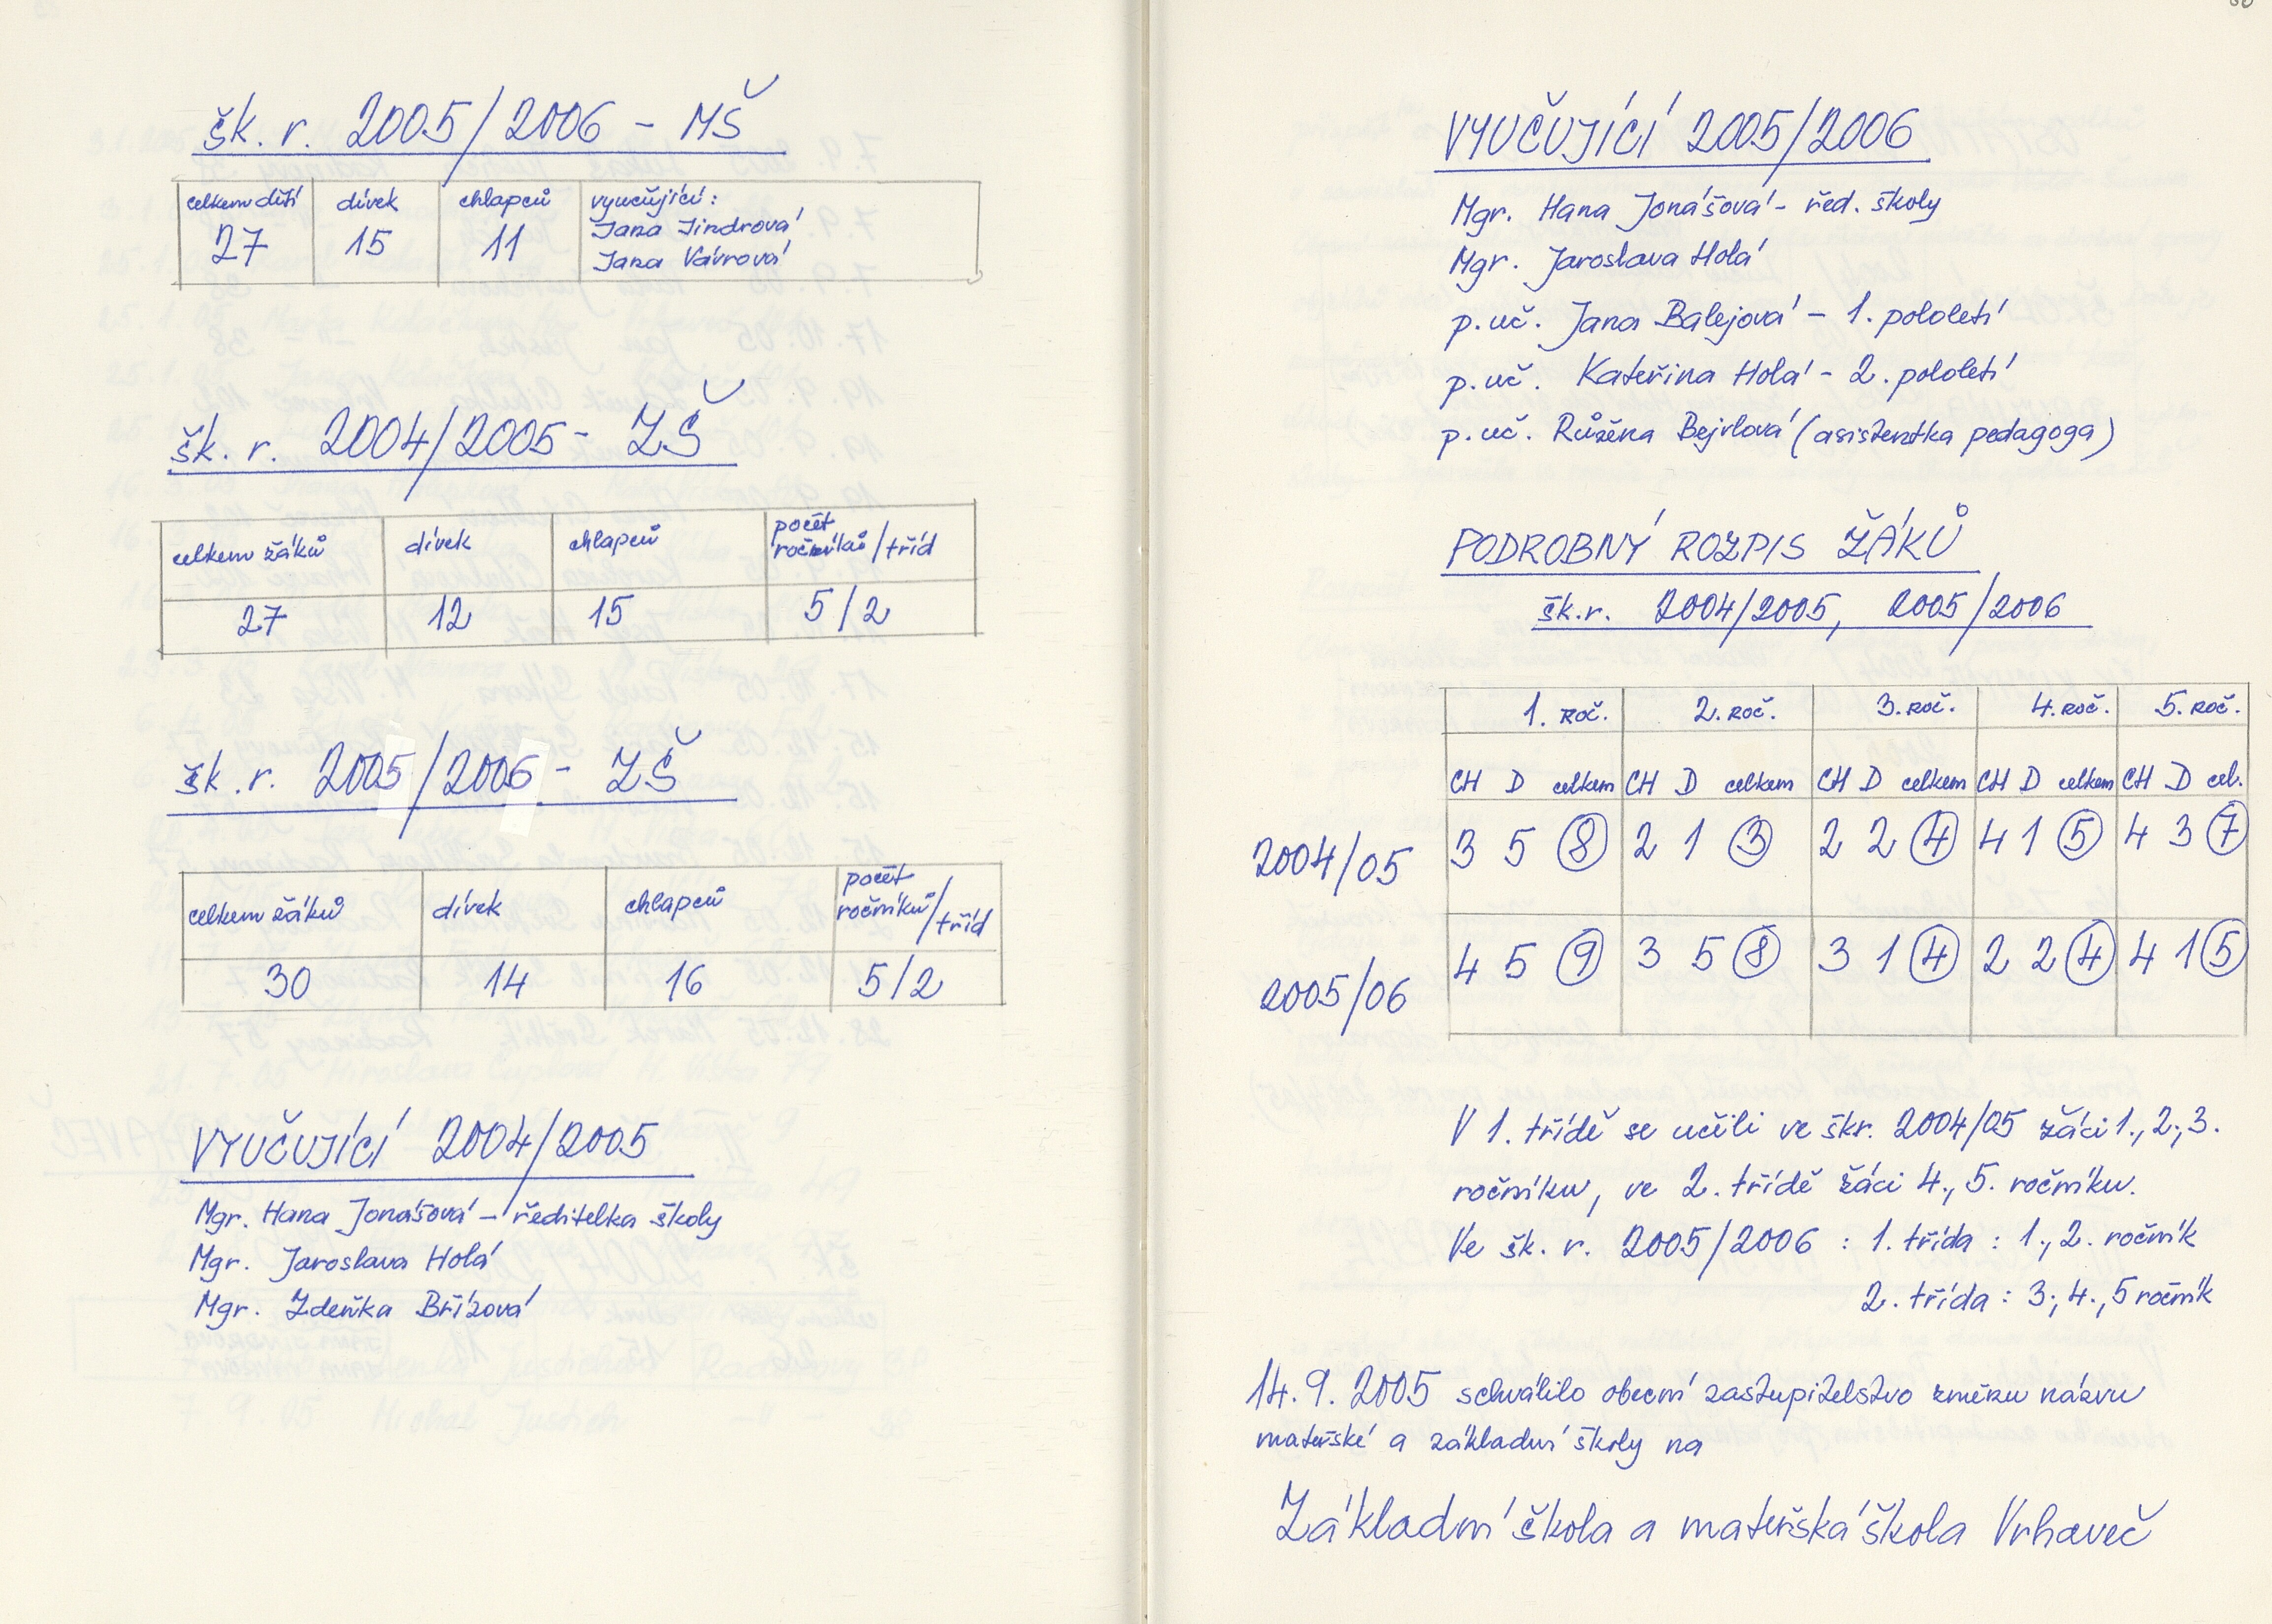 šk. r. 2005/2006 - MŠ
celkem dětí dívek chlapců vyučující:
27 15 11 Jana Jindrová
Jana Vávrová
šk. r. 2004/2005 - ZŠ
celkem žáků dívek chlapců počet ročníků/tříd
27 12 15 5/2
šk. r. 2005/2006 - ZŠ
celkem žáků dívek chlapců počet ročníků/tříd
30 14 16 5/2
VYUČUJÍCÍ 2004/2005
Mgr. Hana Jonášová - ředitelka školy
Mgr. Jaroslava Holá
Mgr. Zdeňka Břízová
VYUČUJÍCÍ 2005/2006
Mgr. Hana Jonášová - řed. školy
Mgr. Jaroslava Holá
p. uč. Jana Balejová - 1. pololetí
p. uč. Kateřina Holá - 2. pololetí
p. uč. Růžena Bejvlová (asistentka pedagoga)
PODROBNÝ ROZPIS ŽÁKŮ
šk. r. 2004/2005, 2005/2006
1. roč. 2. roč. 3. roč. 4. roč. 5. roč.
CH D celkem CH D celkem CH D celkem CH D celkem CH D cel.
2004/05 3 5 8 2 1 3 2 2 4 4 1 5 4 3 7
2005/06 4 5 9 3 5 8 3 1 4 2 2 4 4 1 5
V 1. třídě se učili ve škr. 2004/05 žáci 1., 2., 3.
ročníku, ve 2. třídě žáci 4., 5. ročníku.
Ve šk. r. 2005/2006 : 1. třída : 1., 2. ročník
2. třída : 3., 4., 5 ročník
14. 9. 2005 schválilo obecní zastupitelstvo změnu názvu
mateřské a základní školy na
Základní škola a mateřská škola Vrhaveč